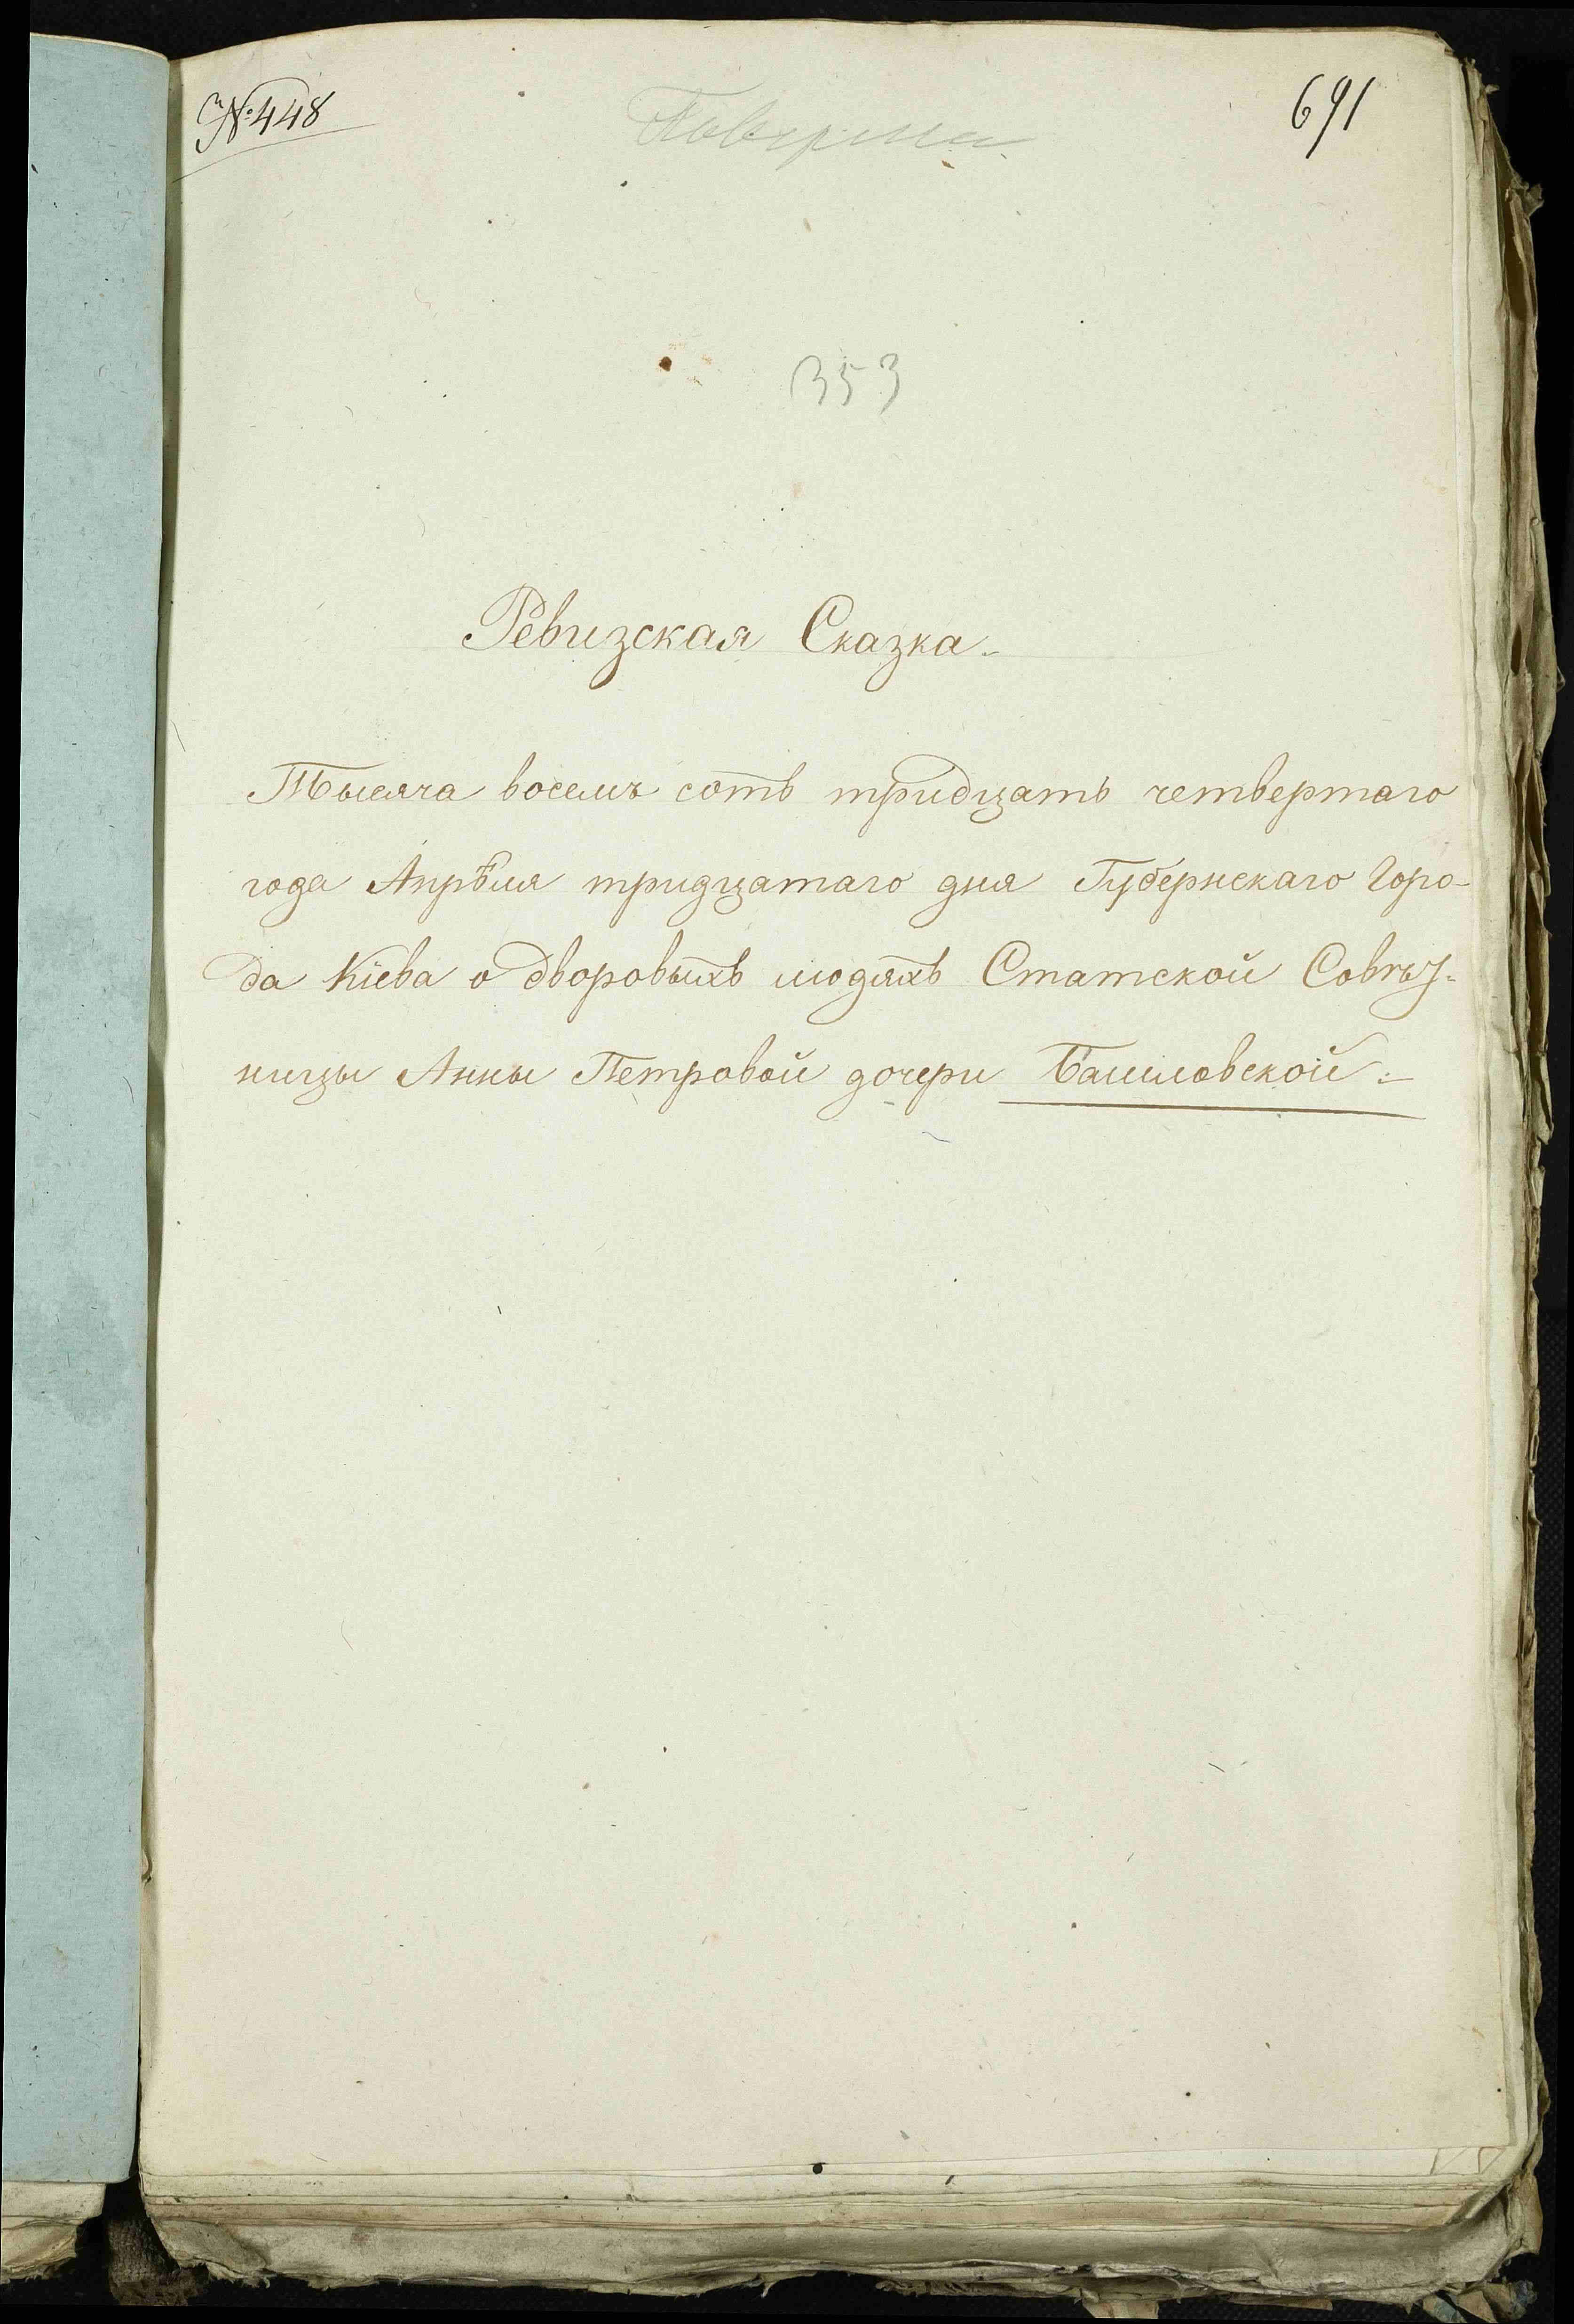 № 448
691
353
Ревизская Сказка.
Тысяча восемъ сотъ тридцать четвертаго
года Апрѣля тридцатаго дня Губернскаго Горо-
да Кіева о дворовыхъ людяхъ Статской Совѣт-
ницы Анны Петровой дочери